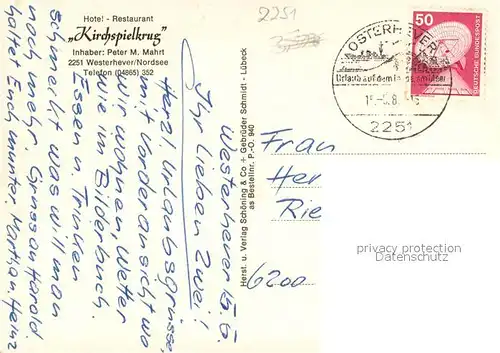 Hotel - Restaurant
„Kirchspielkrug"
Inhaber: Peter M. Mahrt
2251 Westerhever/Nordsee
Telefon (04865) 352
Westerhever 15.6.
Ihr Lieben Zwei!
Herzl. Urlaubsgrüsse,
mit Vorderansicht wo
wir wohnen. Wetter
wie im Bilderbuch.
Essen u. Trinken
schmeckt was will man
noch mehr. Gruss an Harald
haltet Euch munter, Martha u. Heinz
Herst. u. Verlag Schöning & Co + Gebrüder Schmidt - Lübeck
as Bestellnr. P.-O. 940
2251
OSTERHEVER
Urlaub auf dem
2251
50
DEUTSCHE BUNDESPOST
Frau
Her
Rie
6200
privacy protection
Datenschutz